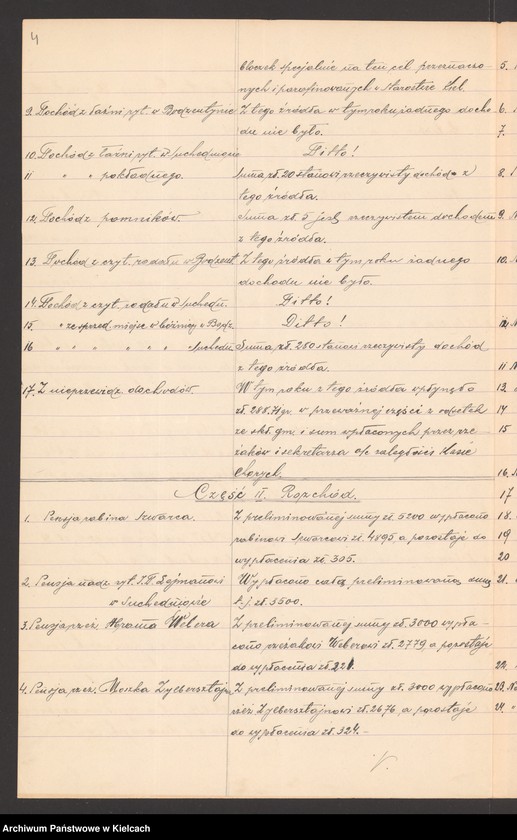 4
bloczek specjalnie na ten cel przeznaczo-
nych i parafinowanych w Starostwie Kiel.
9. Dochód z łaźni ryt. w Bodzentynie Z tego źródła w tym roku żadnego docho-
du nie było.
10. Dochód z łaźni ryt. w Suchedniowie Ditto!
11 " " pokładnego. Suma zł. 20 stanowi rzeczywisty dochód z
tego źródła.
12. Dochód z pomników. Suma zł 5 jest rzeczywistem dochodem
z tego źródła.
13. Dochód z czyt. rodału w Bodzent. Z tego źródła w tym roku żadnego
dochodu nie było.
14. Dochód z czyt. rodału w Suchedn. Ditto!
15. " ze sprzed. miejsc w bóżnicy w Bodz. Ditto!
16 " " " " " " Suchedn. Suma zł. 250 stanowi rzeczywisty dochód
z tego źródła.
17. Z nieprzewidz. dochodów. W tym roku z tego źródła wpłynęło
zł. 288.71 gr. w przeważnej części z odsetek
ze skł. gm. i sum wpłaconych przez rze-
zaków i sekretarza a/c zaległości Kasie
Chorych.
Część II. Rozchód.
1. Pensja rabina Szwarca. Z preliminowanej sumy zł. 5200 wypłacono
rabinowi Szwarcowi zł. 4895 a pozostaje do
wypłacenia zł. 305.
2. Pensja nadz. ryt. I. B. Zajmanowi Wypłacono całą preliminowaną sumę
w Suchedniowie t. j. zł. 3500.
3. Pensja rzez. Abrama Webera Z preliminowanej sumy zł. 3000 wypła-
cono rzezakowi Weberowi zł. 2779, a pozostaje
do wypłacenia zł. 221.
4. Pensja rzez. Moszka Zylbersztajna Z preliminowanej sumy zł. 3000 wypłacono
rzez. Zylbersztajnowi zł. 2676, a pozostaje
do wypłacenia zł. 324.-
5.
6.
7.
8.
9.
10.
12.
11
13
14
15
16.
17
18.
19
20
21.
22.
23.
24.
Archiwum Państwowe w Kielcach